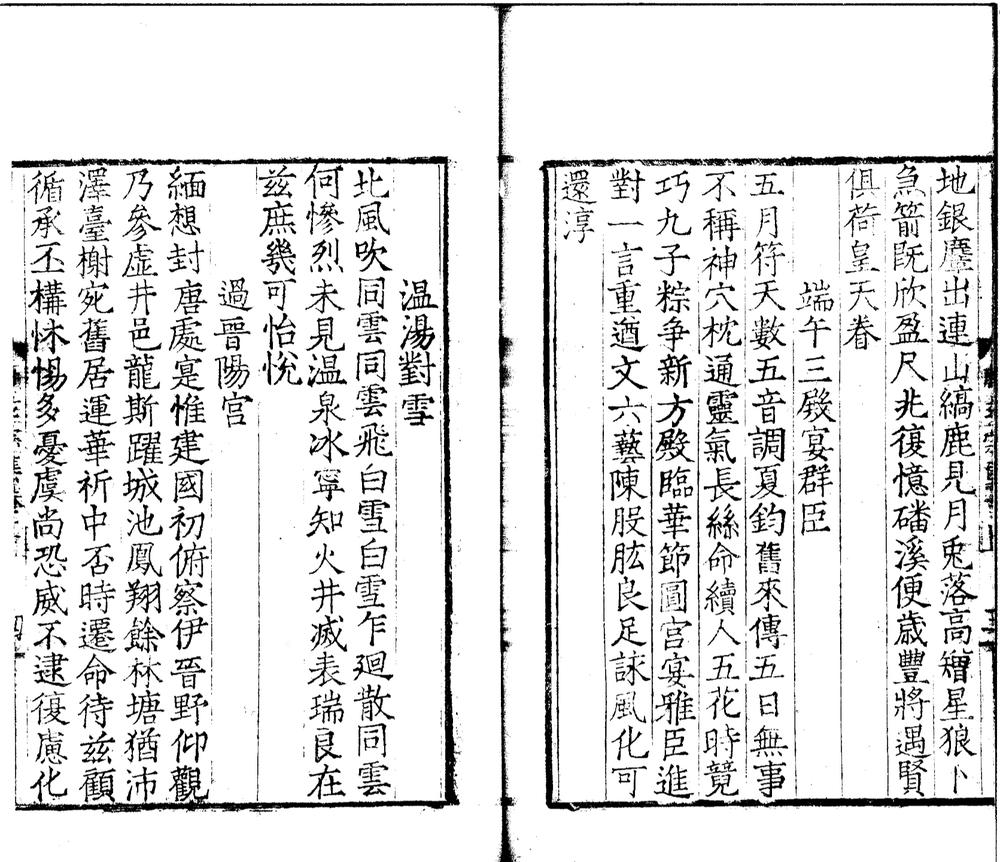 地銀麞出連山縞鹿見月兎落高矰星狼卜
急箭既欣盈尺兆復憶磻溪便歲豐將遇賢
俱荷皇天眷
端午三殿宴群臣
五月符天數五音調夏鈞舊來傳五日無事
不稱神穴枕通靈氣長絲命續人五花時競
巧九子粽争新方殿臨華節圓宫宴雅臣進
對一言重遒文六藝陳股肱良足詠風化可
還淳
温湯對雪
北風吹同雲同雲飛白雪白雪乍廻散同雲
何慘烈未見温泉冰寧知火井滅表瑞良在
兹庶幾可怡悅
過晉陽宫
緬想封唐處寔惟建國初俯察伊晉野仰觀
乃參虚井邑龍斯躍城池鳳翔餘林塘猶沛
澤臺榭宛舊居運華祈中否時遷命待兹顧
循承丕構怵惕多憂虞尚恐威不逮復慮化